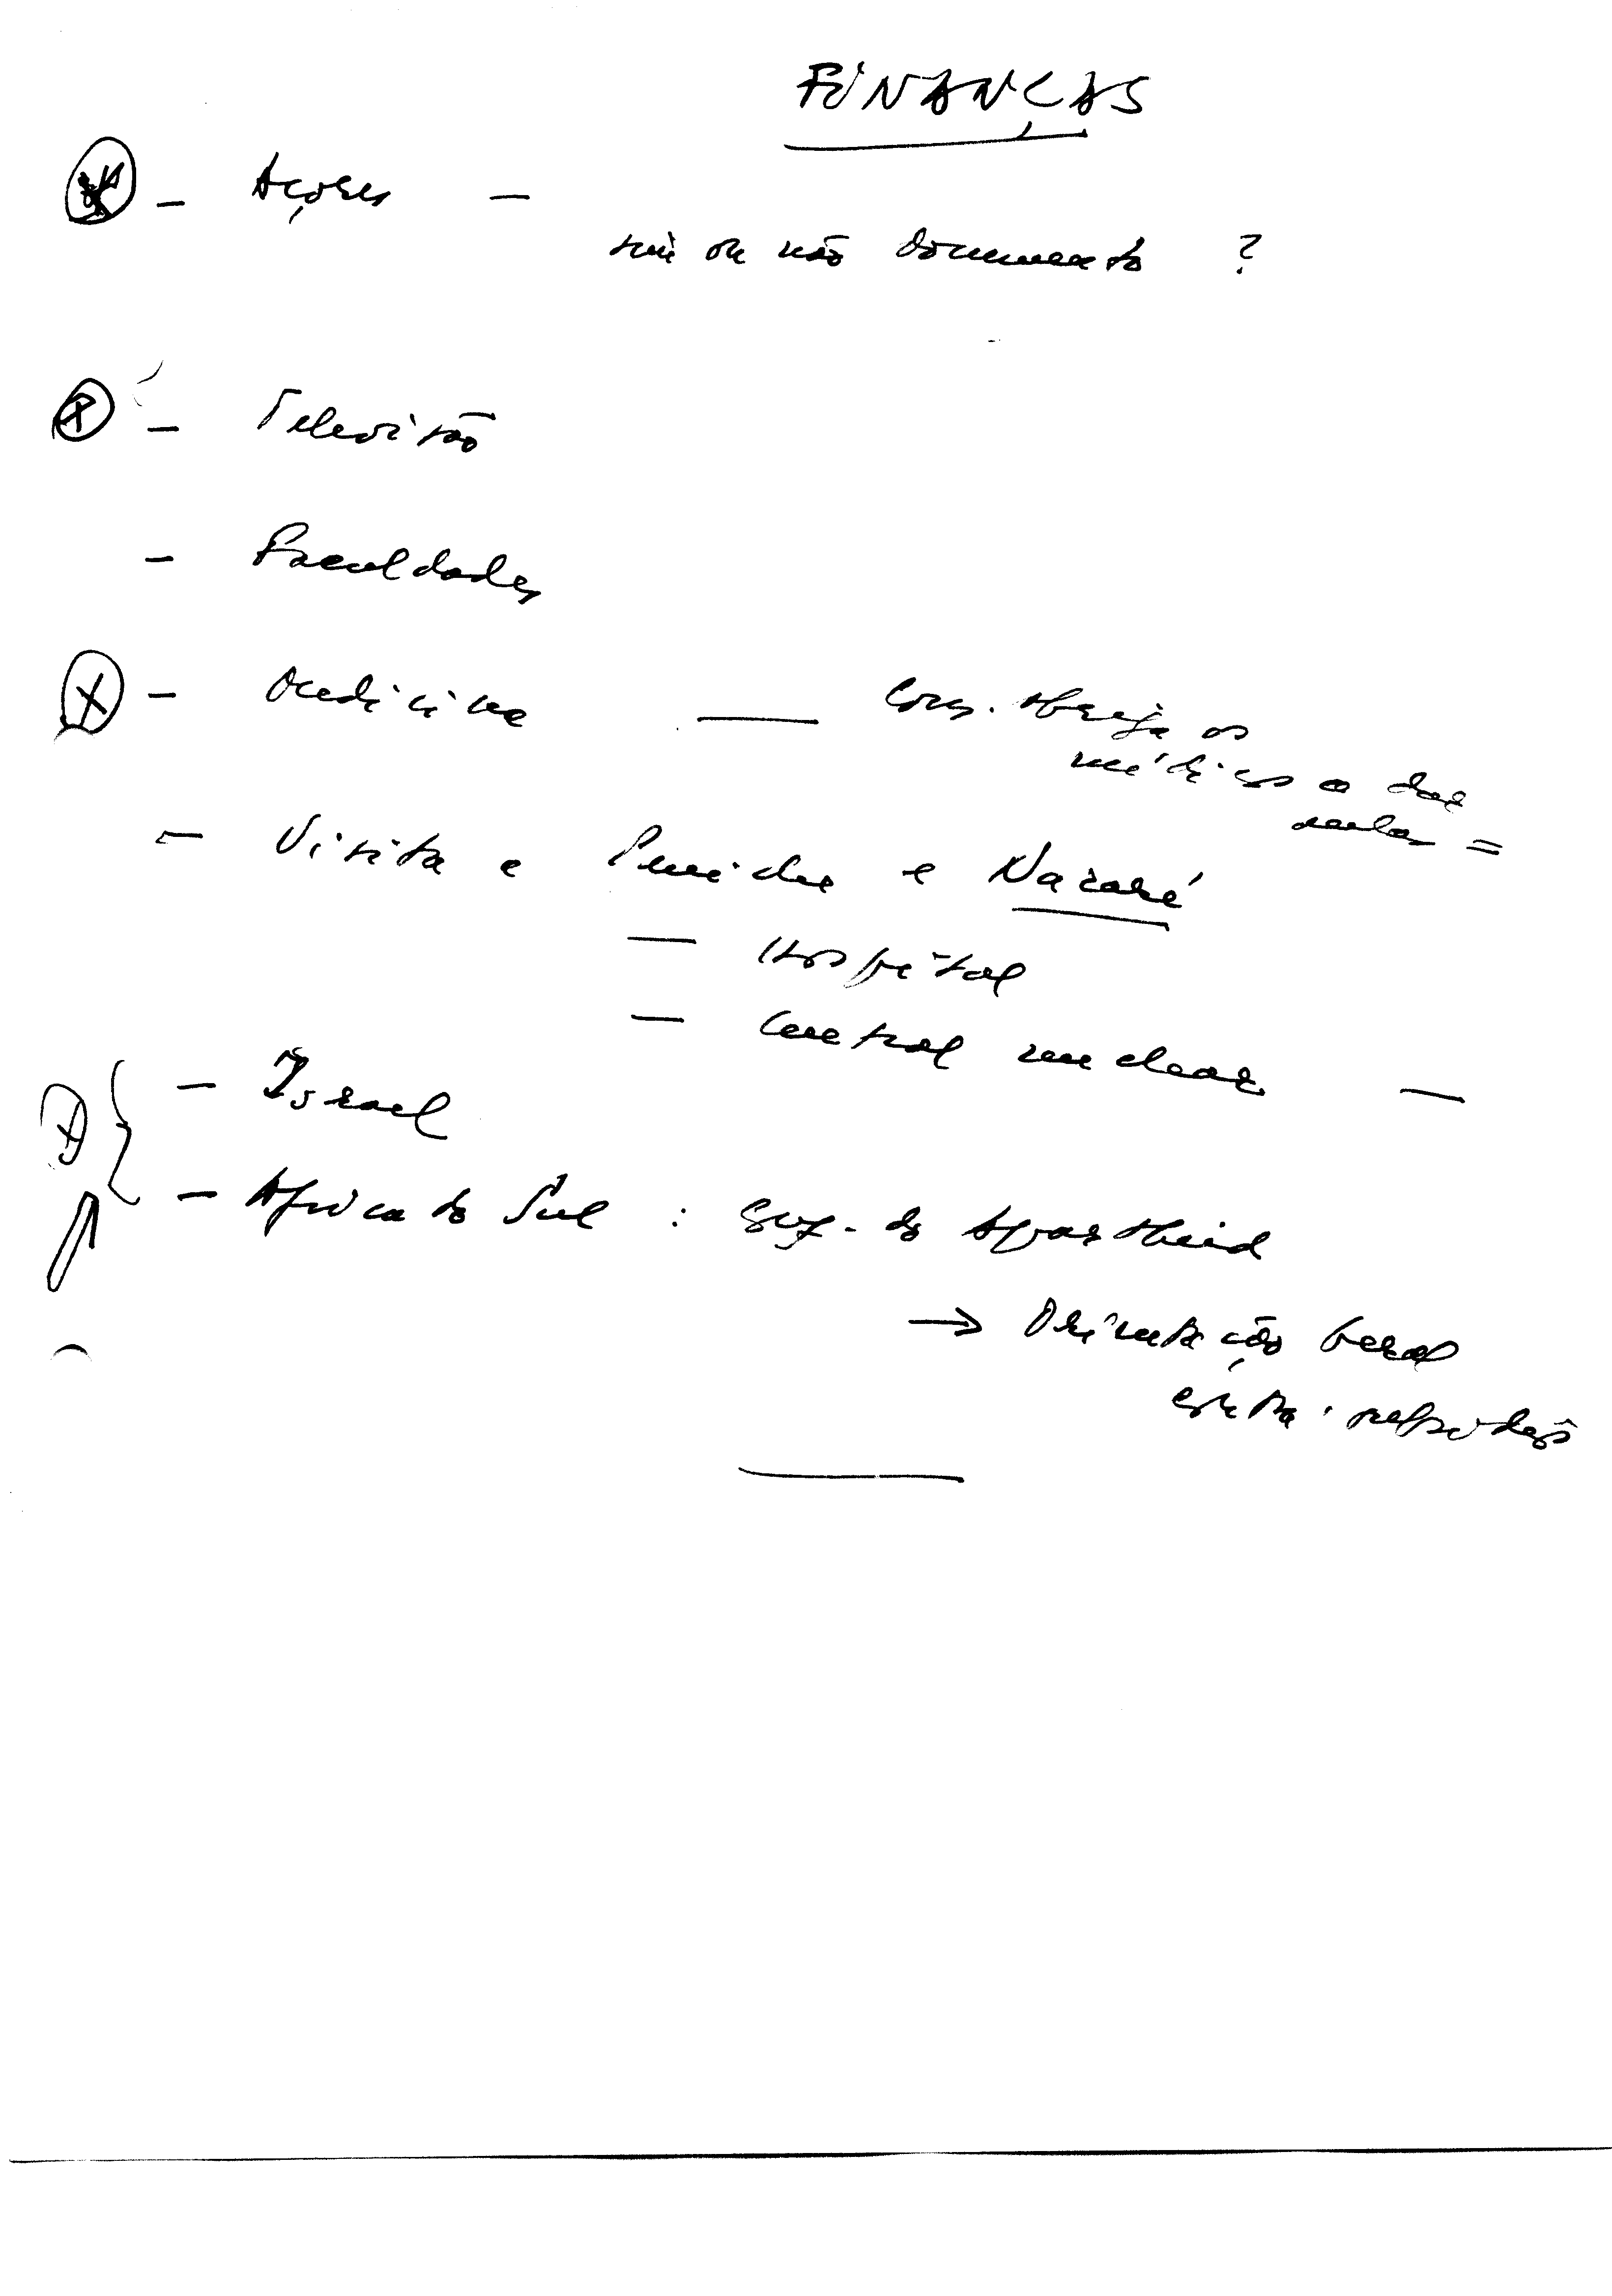 FINANÇAS
- Açores -
sim ou não documento ?
- Televisão
- Faculdades
- Medicina — Cons. obriga os
médicos a dar
aulas =
- Visita a Peniche e Nazaré
- Hospital
- Central nuclear -
- Israel
- Africa do Sul : do Apartheid
→ Orientação Geral
esta